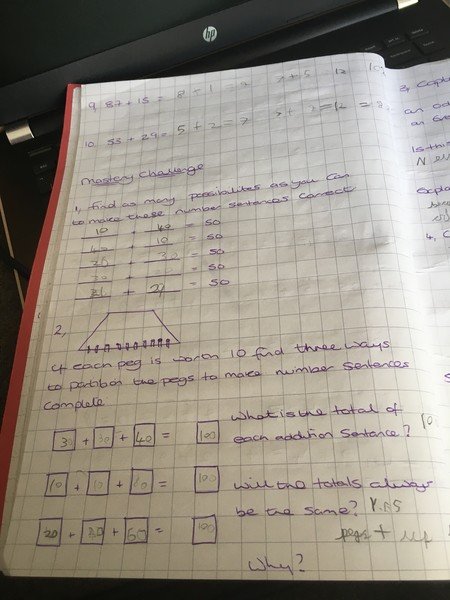 hp
9, 87 + 15 = 8 + 1 = 9 7 + 5 = 12
10. 53 + 29 = 5 + 2 = 7 = 12
Mastery Challenge
1, find as many possibilites as you can
to make these number sentences correct
10 + 40 = 50
40 + 10 = 50
+ 30 = 50
+ = 50
+ = 50
2,
If each peg is worth 10 find three ways
to partition the pegs to make number sentences
complete
30 + 30 + 40 = 100
What is the total of
each addition sentence?
10 + + = 100
will the totals always
be the same?
20 + + 60 = 100
pegs +
Why?
3, Expla
an
Is this
N
Expla
4, C